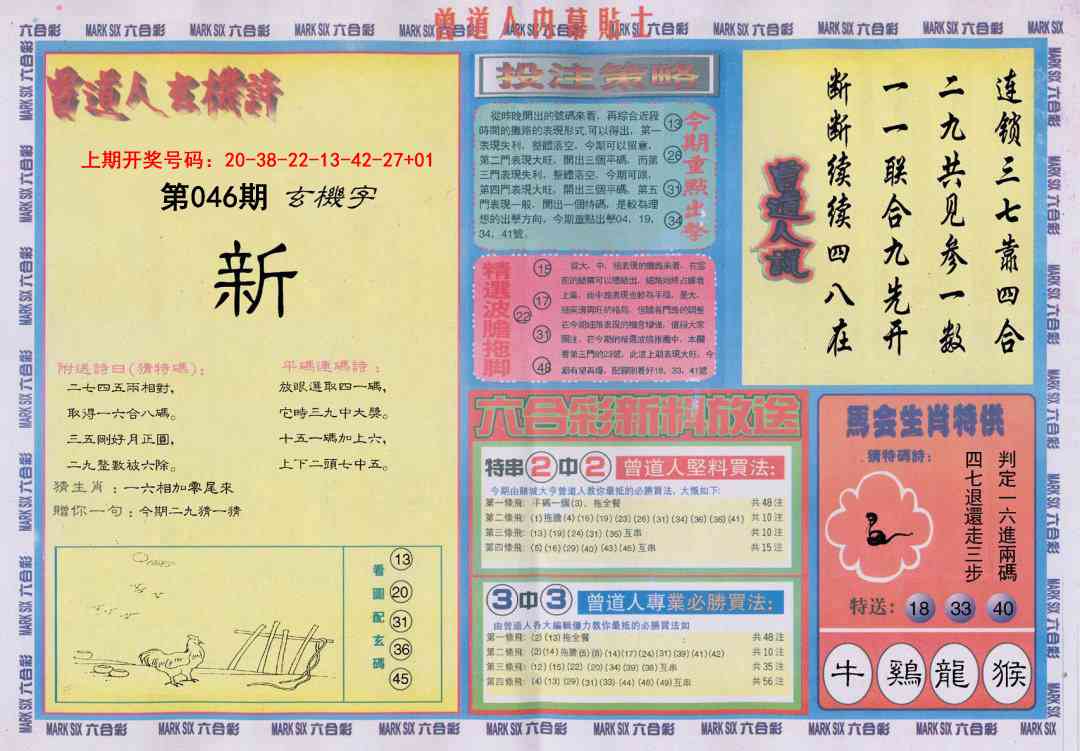 曾道人内幕貼士
MARK SIX 六合彩
曾道人玄機詩
上期开奖号码：20-38-22-13-42-27+01
第046期 玄機字
新
附送詩曰(猜特碼)：
二七四五兩相對，
取得一六合八碼。
三五剛好月正圓，
二九整數被六除。
平碼連碼詩：
放眼選取四一碼，
它時三九中大獎。
十五一碼加上六，
上下二頭七中五。
猜生肖：一六相加零尾來
贈你一句：今期二九猜一猜
看圖配玄碼
13
20
31
36
45
投注策略
從昨晚開出的號碼來看，再綜合近段
時間的攤路的表現形式，可以得出，第一
門表現失利，整體落空，今期可以留意，
第二門表現大旺，開出三個平碼，而第
三門表現失利，整體落空，今期可跟，
第四門表現大旺，開出三個平碼，第五
門表現一般，開出一個特碼，是較為理
想的出擊方向，今期重點出擊04，19，
34，41號。
13
26
31
34
今期重點出擊
精選波膽拖脚
15
17
22
31
48
曾道人說
连锁三七靠四合
二九共见参一数
一一联合九先开
断断续续四八在
六合彩新料放送
特串2中2 曾道人堅料買法：
今期由賭城大亨曾道人教你最抵的必勝買法，大慨如下：
第一條飛：平碼一個(3)，拖全餐 共48注
第二條飛：(1)拖膽(4)(16)(19)(23)(26)(31)(34)(36)(38)(41) 共10注
第三條飛：(13)(19)(24)(31)(35)互串 共10注
第四條飛：(5)(16)(29)(40)(43)(45)互串 共15注
3中3 曾道人專業必勝買法：
由曾道人各大編輯僵力教你最抵的必勝買法如
第一條飛：(2)(13)拖全餐 共48注
第二條飛：(2)(14)拖膽(5)(8)(14)(17)(24)(31)(39)(41)(42) 共10注
第三條飛：(12)(15)(22)(20)(34)(39)(36)互串 共35注
第四條飛：(4)(13)(29)(31)(33)(44)(48)(49)互串 共56注
馬会生肖特供
猜特碼詩：
判定一六進兩碼
四七退還走三步
特送：18 33 40
牛 鷄 龍 猴